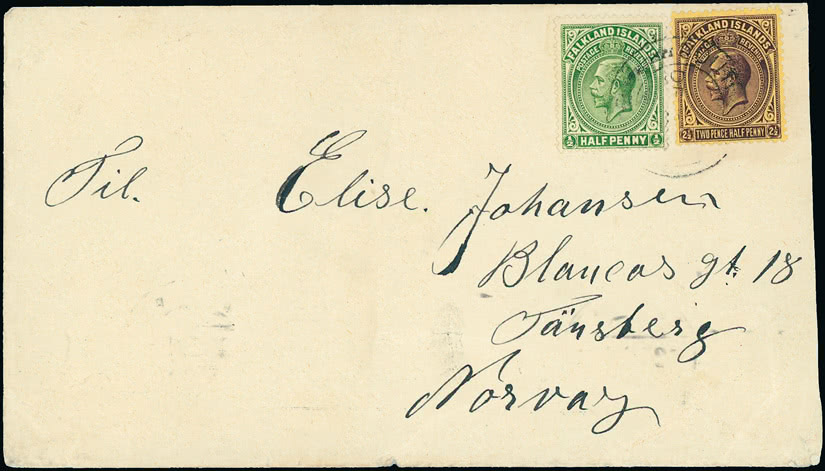 FALKLAND ISLANDS
POSTAGE REVENUE
½ HALF PENNY ½
FALKLAND ISLANDS
2½ TWO PENCE HALF PENNY 2½
Til. Elise. Johansen
Blancas gt. 18
Tänsberg
Norvay